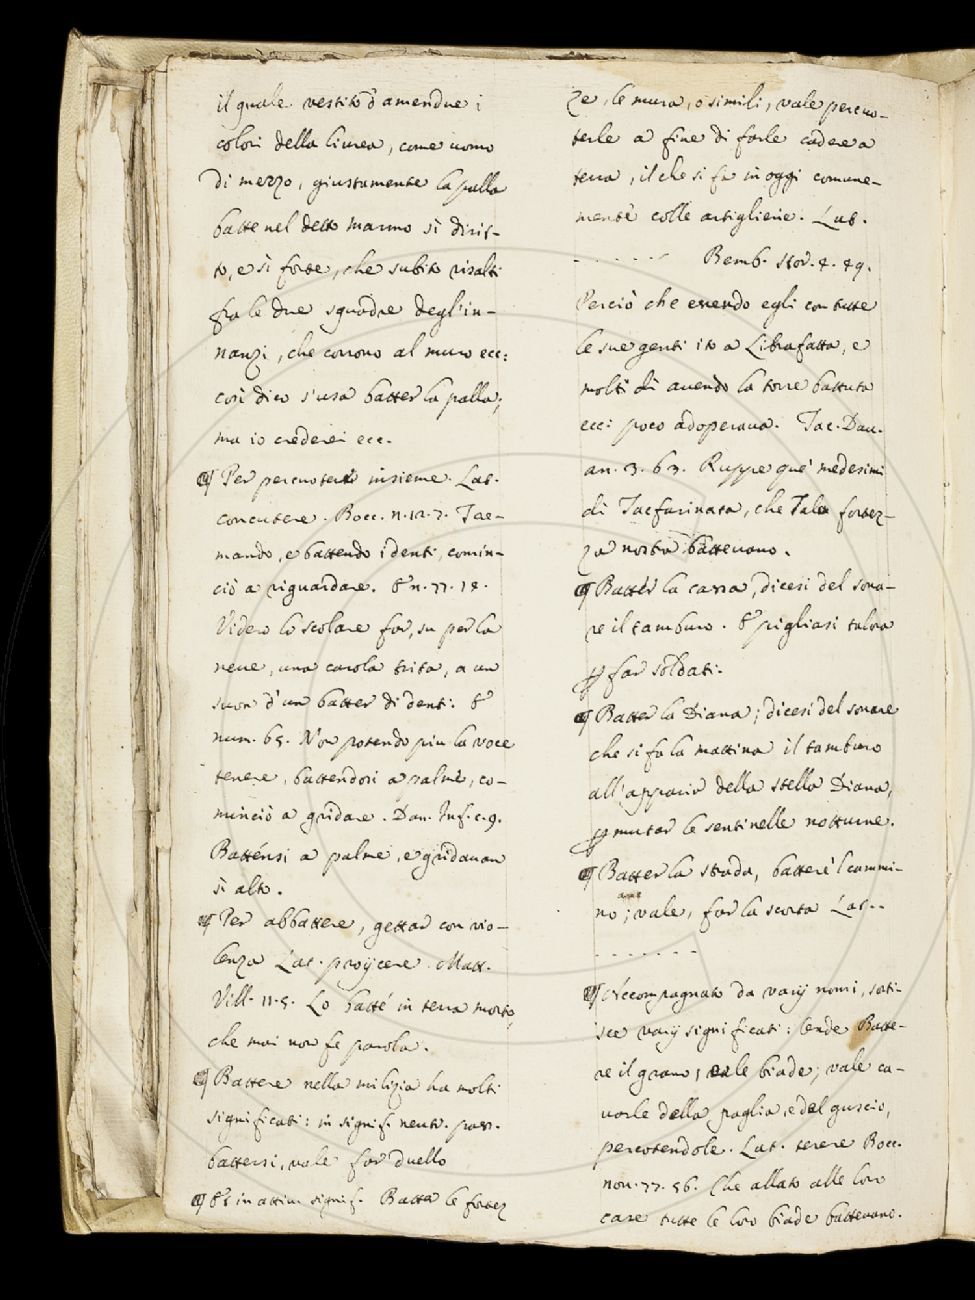 il quale vestito d'amendue i
colori della liurea, come uomo
di mezzo, giustamente la palla
batte nel detto marmo sì dirit-
to, e sì forte, che subito risalti
fra le due squadre degl'in-
nanzi, che corrono al muro ecc:
così dico s'usa batter la palla;
ma io crederei ecc.
Per percuotere insieme. Lat.
concutere. Bocc. n.12.7. Tre-
mando, e battendo i denti, comin-
ciò a riguardare. & n. 77. 14.
Videro lo scolare far, su per la
neue, una carola trita, a un
suon d'un batter di denti. &
num. 65. Non potendo piu la voce
tenere, battendosi a palme, co-
minciò a gridare. Dan. Inf. c. 9.
Batténsi a palme, e gridauan
sì alto.
Per abbattere, gettar con vio-
lenza Lat. proijcere. Matt.
Vill. 11.5. Lo batté in terra morto,
che mai non fe parola.
Battere nella milizia ha molti
significati: in signif. neutr. pass.
battersi, vale far duello
& in attiu. signif. Batter le fortez
ze, le mura, o simili, vale percuo-
terle a fine di farle cadere a
terra, il che si fa in oggi comune-
mente colle artiglierie. Lat.
. . . . . . Bemb. stor. 4. 49.
Perciò che essendo egli con tutte
le sue genti ito a Librafatta, e
molti dì auendo la torre battuta
ecc: poco adoperaua. Tac. Dau.
an. 3. 63. Ruppe que' medesimi
di Tacfarinata, che Tala fortez-
za nostra batteuano.
Batter la cassa, dicesi del sona-
re il tamburo. & pigliasi talora
p far soldati.
Batter la Diana; dicesi del sonare
che si fa la mattina il tamburo
all'apparir della stella Diana,
p mutar le sentinelle notturne.
Batter la strada, battere 'l cammi-
no; vale, far la scorta Lat..
. . . . . . .
Accompagnato da varij nomi, sorti-
sce varij significati: Batte-
re il grano, vale ca-
uarle della paglia, e del guscio,
percotendole. Lat. terere Bocc.
nou. 77. 56. Che allato alle loro
case tutte le loro biade batteuano.